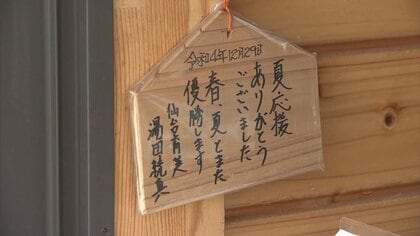 令和4年12月29日
夏応援
ありがとう
ございました
春、夏とまた
優勝します
仙台育英
湯田統真